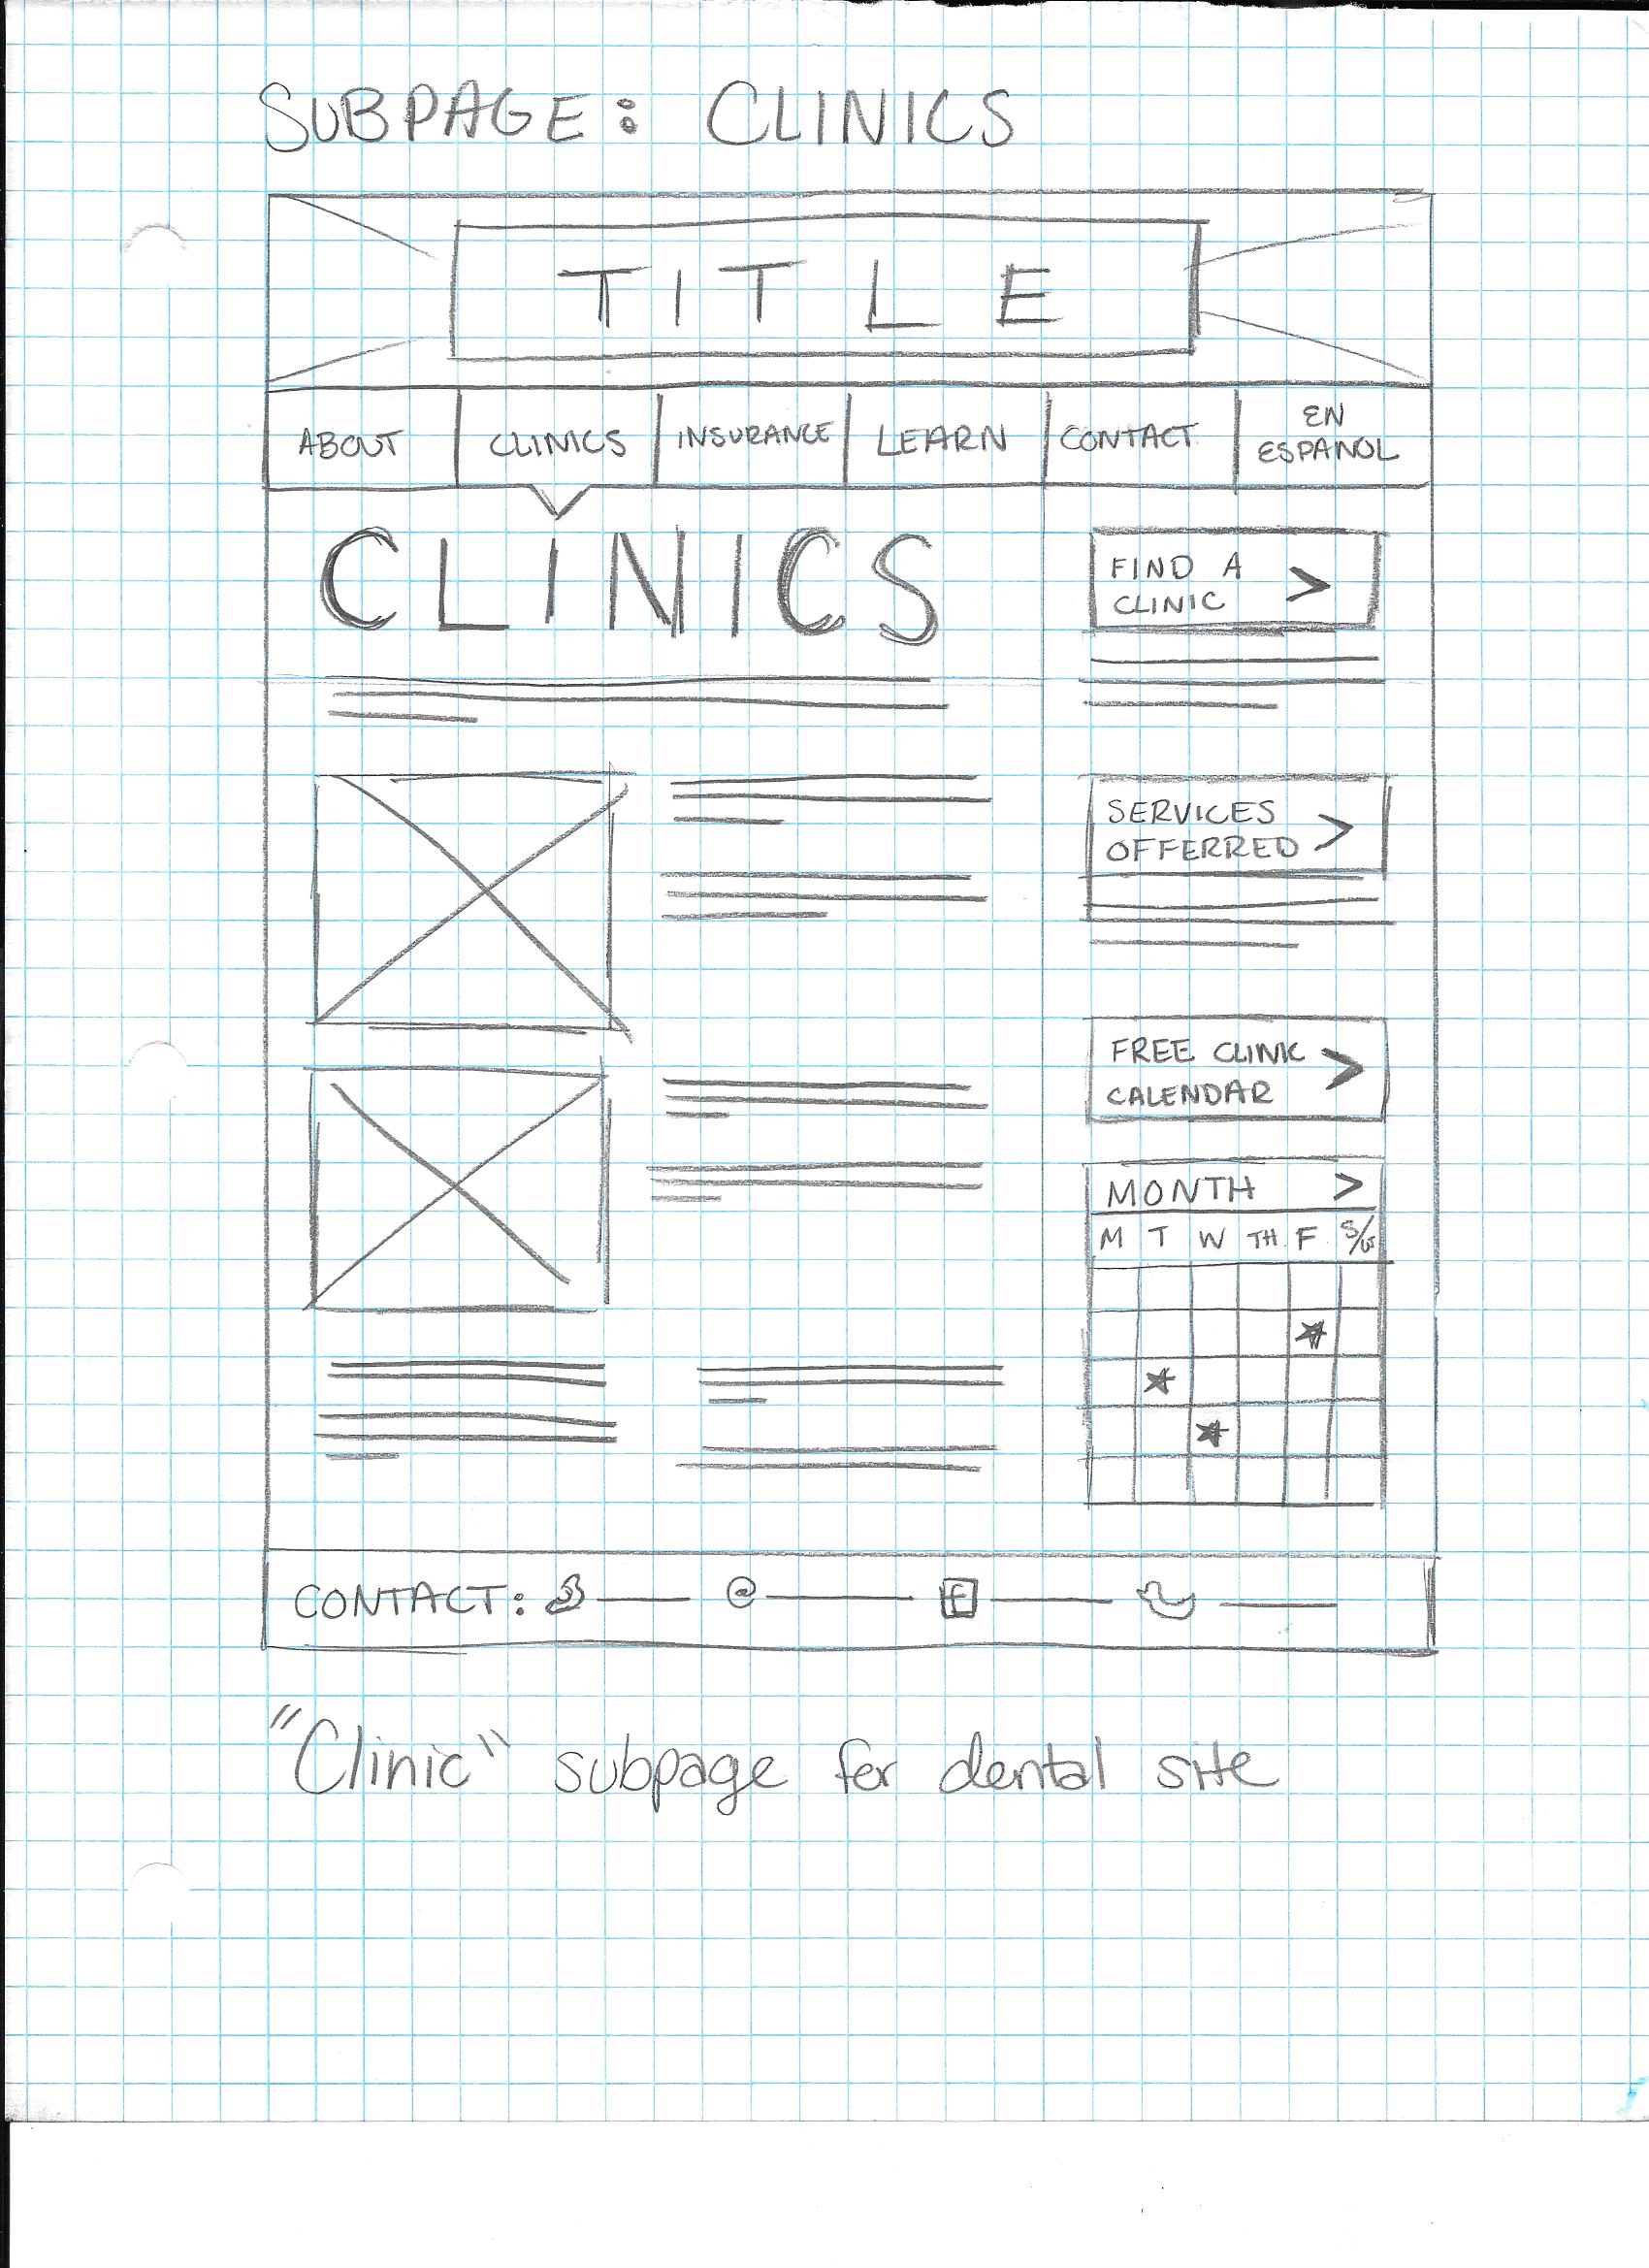 SUBPAGE: CLINICS
TITLE
ABOUT
CLINICS
INSURANCE
LEARN
CONTACT
EN
ESPANOL
CLINICS
FIND A
CLINIC >
SERVICES
OFFERRED >
FREE CLINIC
CALENDAR >
MONTH >
M T W TH F S/
CONTACT: @
"Clinic" subpage for dental site